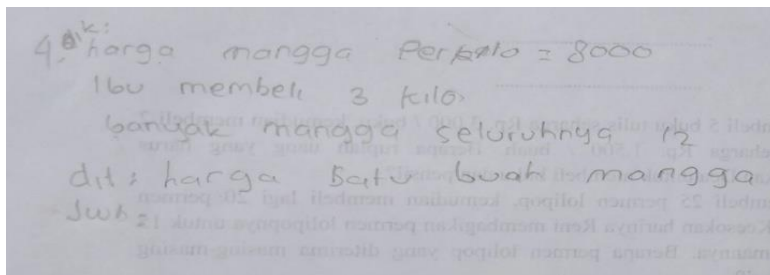 4. dik:
harga mangga Perkilo = 8000
Ibu membeli 3 kilo
banyak mangga seluruhnya 12
dit: harga satu buah mangga
Jwb: